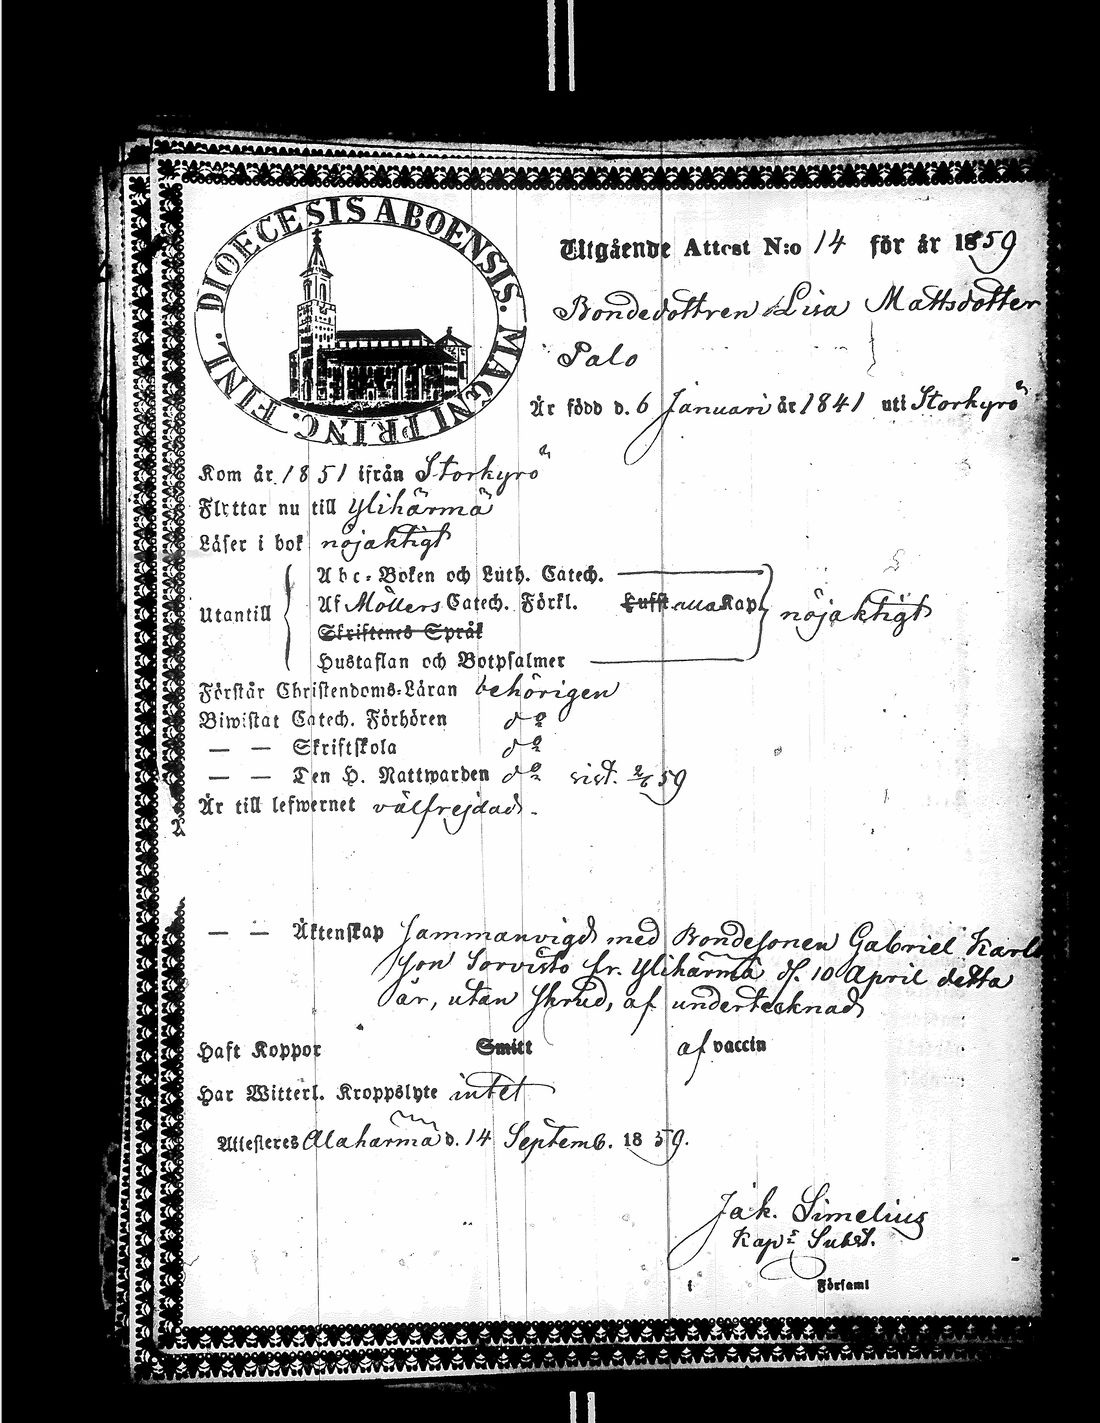 DIOECESIS ABOENSIS. MAGNI PRINC. FINL.
Utgående Attest N:o 14 för år 1859
Bondedottren Lisa Mattsdotter
Palo
Är född d. 6 Januari år 1841 uti Storkyrö
Kom år 1851 ifrån Storkyrö
Flyttar nu till Ylihärmä
Läser i bok nöjaktigt
Utantill
Abc-Boken och Luth. Catech.
Af Möllers Catech. Förkl. Lufft Kap. nöjaktigt
Skriftenes Språk
Hustaflan och Botpsalmer
Förstår Christendoms-Läran behörigen
Biwistat Catech. Förhören do
— — Skriftskola do
— — Den H. Nattwarden do sist. 2/6 59
Är till lefwernet välfrejdad.
— — Äktenskap sammanvigd med Bondesonen Gabriel Karls
son Sorvisto fr. Ylihärmä d. 10 April detta
år, utan skrud, af undertecknad
Haft Koppor Smitt af vaccin
Har Witterl. Kroppslyte intet
Attesteres Alahärmä d. 14 Septemb. 1859.
Jak. Simelius
Kaps Subst.
i Församl